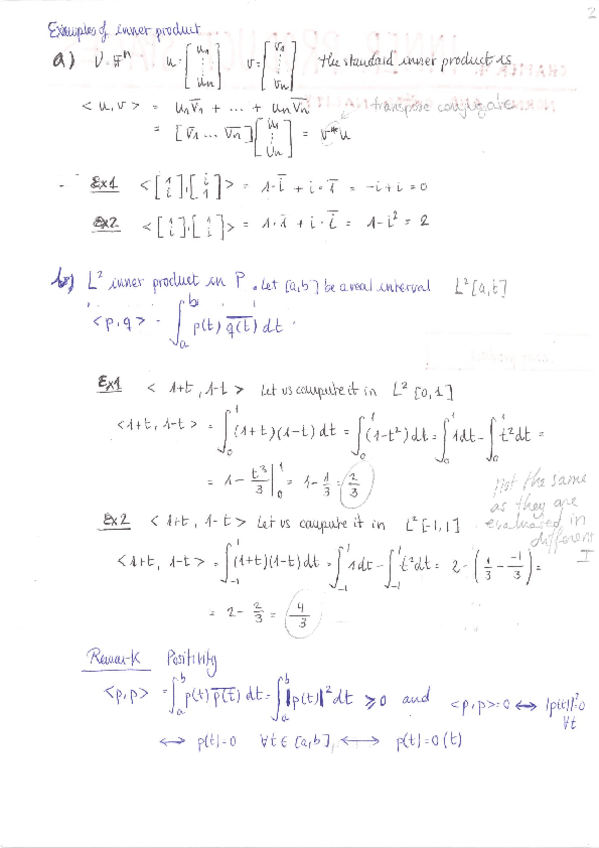 2
Examples of inner product
a) V 𝔽ⁿ u = [u₁ ⋮ uₙ] v = [v₁ ⋮ vₙ] the standard inner product is
<u,v> = u₁v̅₁ + ... + uₙv̅ₙ
= [v̅₁ ... v̅ₙ] [u₁ ⋮ uₙ] = v*u ← transpose conjugate
Ex1 <[1 i],[i 1]> = 1·i̅ + i·1̅ = -i+i = 0
Ex2 <[1 i],[1 i]> = 1·1̅ + i·i̅ = 1-i² = 2
b) L² inner product in P. Let [a,b] be a real interval L²[a,t]
<p,q> = ∫ₐᵇ p(t) q̅(̅t̅)̅ dt
Ex1 <1+t, 1-t> Let us compute it in L²[0,1]
<1+t, 1-t> = ∫₀¹ (1+t)(1-t) dt = ∫₀¹ (1-t²) dt = ∫₀¹ 1dt - ∫₀¹ t² dt =
= 1 - t³/3 |₀¹ = 1 - 1/3 = 2/3
Not the same
as they are
evaluated in
different
I
Ex2 <1+t, 1-t> Let us compute it in L²[-1,1]
<1+t, 1-t> = ∫₋₁¹ (1+t)(1-t) dt = ∫₋₁¹ 1dt - ∫₋₁¹ t² dt = 2 - (1/3 - -1/3) =
= 2 - 2/3 = 4/3
Remark Positivity
<p,p> = ∫ₐᵇ p(t) p̅(̅t̅)̅ dt = ∫ₐᵇ |p(t)|² dt ⩾ 0 and <p,p>=0 ↔ |p(t)|²=0
∀t
↔ p(t)=0 ∀t∈[a,b], ↔ p(t)=0(t)